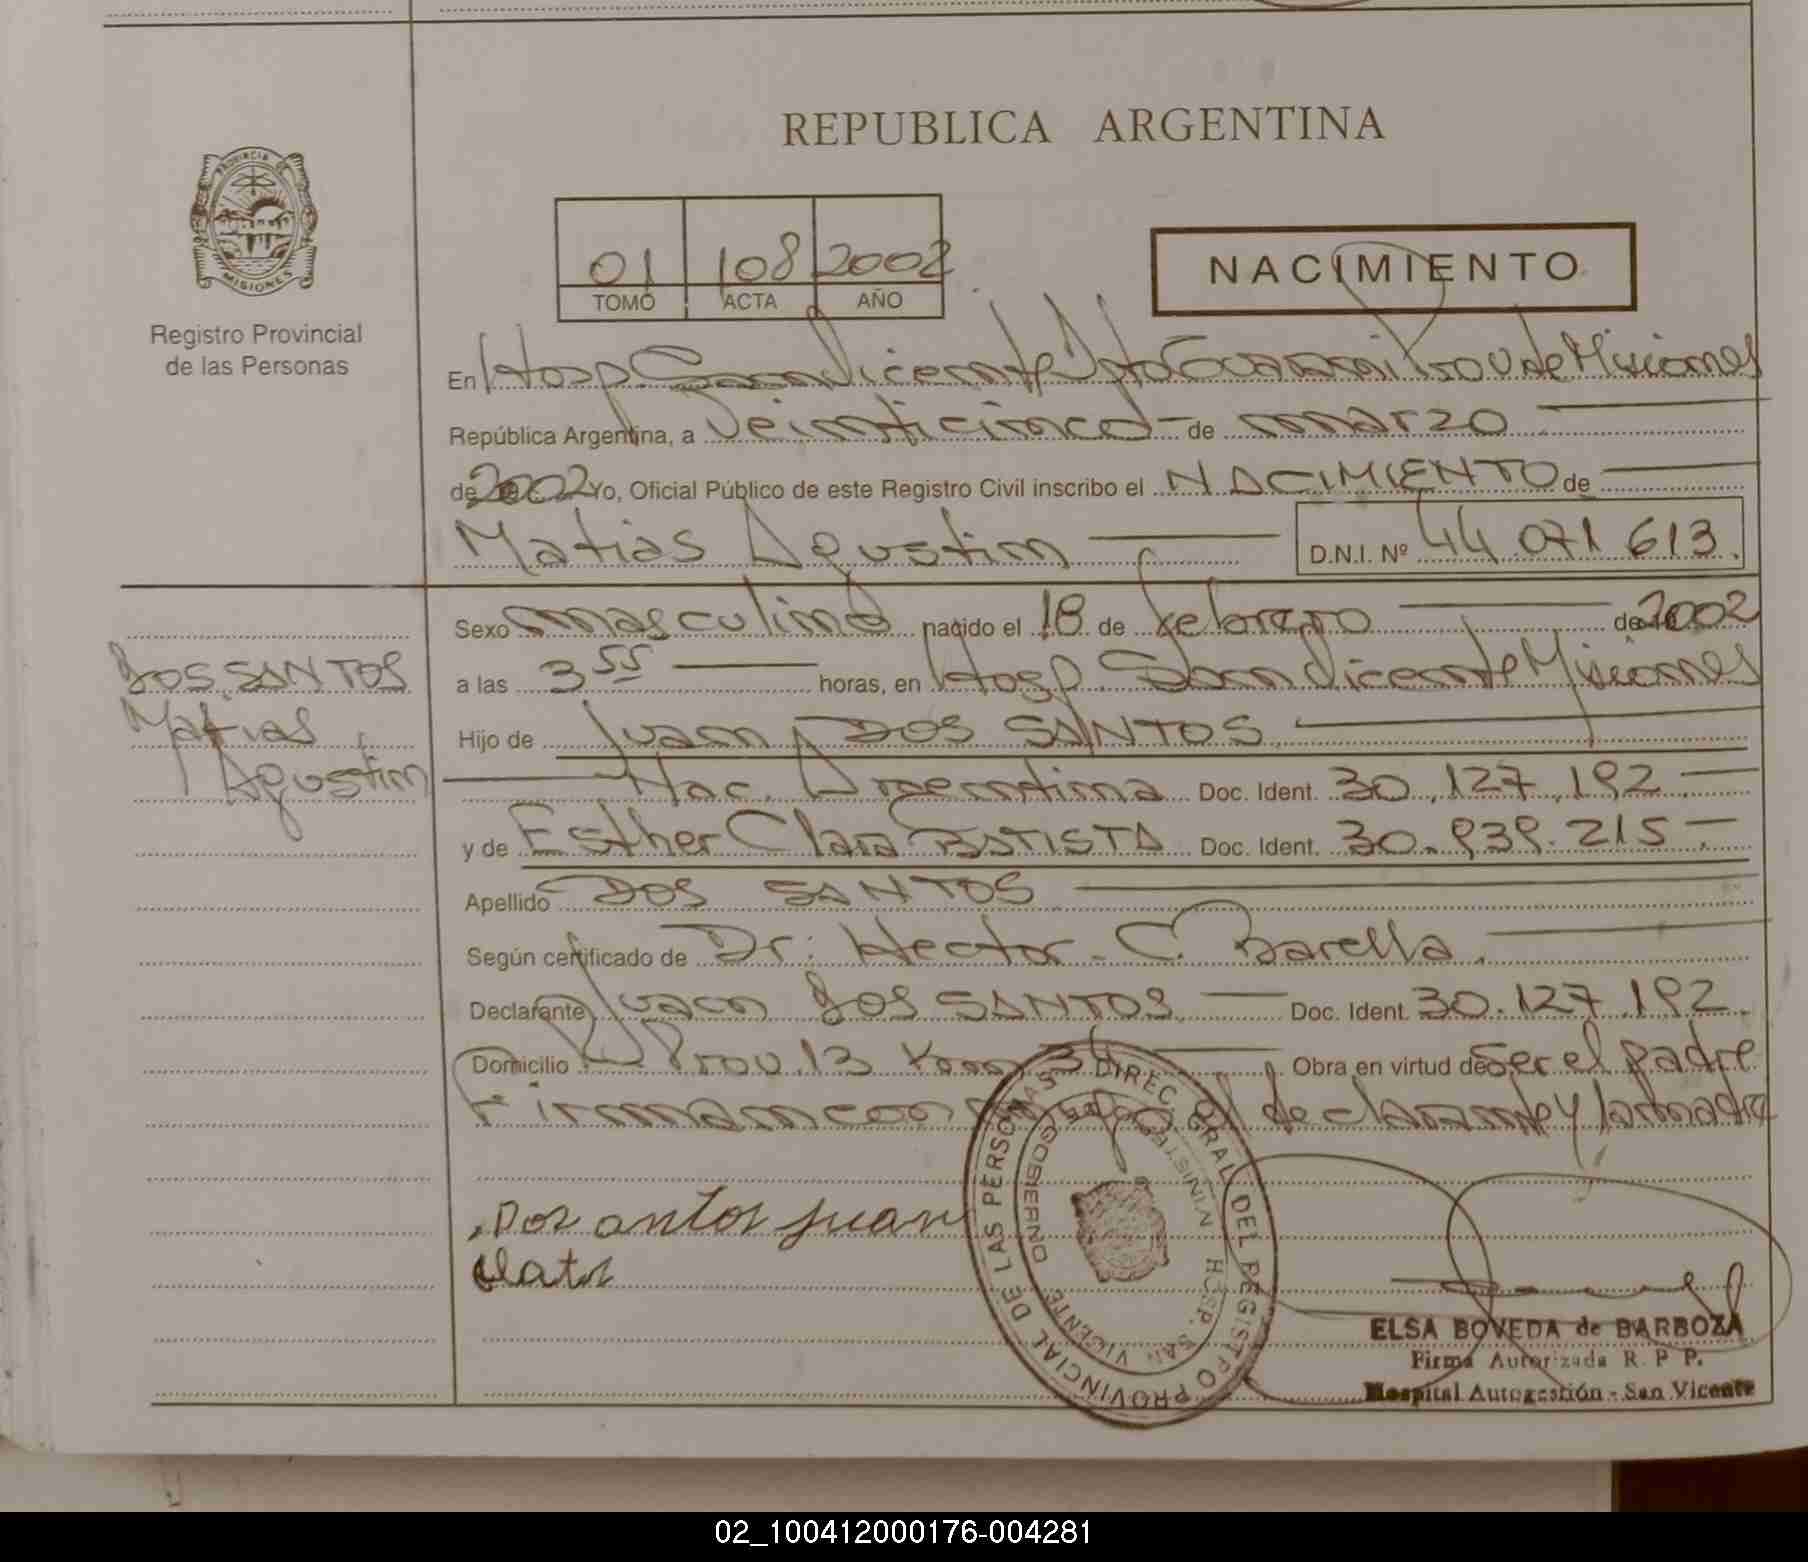 REPUBLICA ARGENTINA
PROVINCIA DE
MISIONES
Registro Provincial
de las Personas
01 108 2002
TOMO ACTA AÑO
NACIMIENTO
En Hosp. San Vicente Dpto Guarani Prov de Misiones
República Argentina, a Veinticinco de marzo
de 2002 Yo, Oficial Público de este Registro Civil inscribo el NACIMIENTO de
Matias Agustin D.N.I. Nº 44 071 613.
Sexo masculino nacido el 18 de febrero de 2002
DOS SANTOS
Matias
Agustin
a las 3 55 horas, en Hosp. San Vicente Misiones
Hijo de Juan DOS SANTOS
Nac. Argentina Doc. Ident. 30.127.192
y de Esther Clara BATISTA Doc. Ident. 30.939.215
Apellido DOS SANTOS
Según certificado de Dr. Hector C. Barella
Declarante Juan DOS SANTOS Doc. Ident. 30.127.192
Domicilio Prov. 13 Km 34 Obra en virtud de Ser el padre
Firman con el declarante y la madre
Dos antos juan
DIREC. GRAL DEL REGISTRO PROVINCIAL DE LAS PERSONAS
HOSP. SAN VICENTE
ELSA BOVEDA de BARBOZA
Firma Autorizada R. P. P.
Hospital Autogestión - San Vicente
02_100412000176-004281